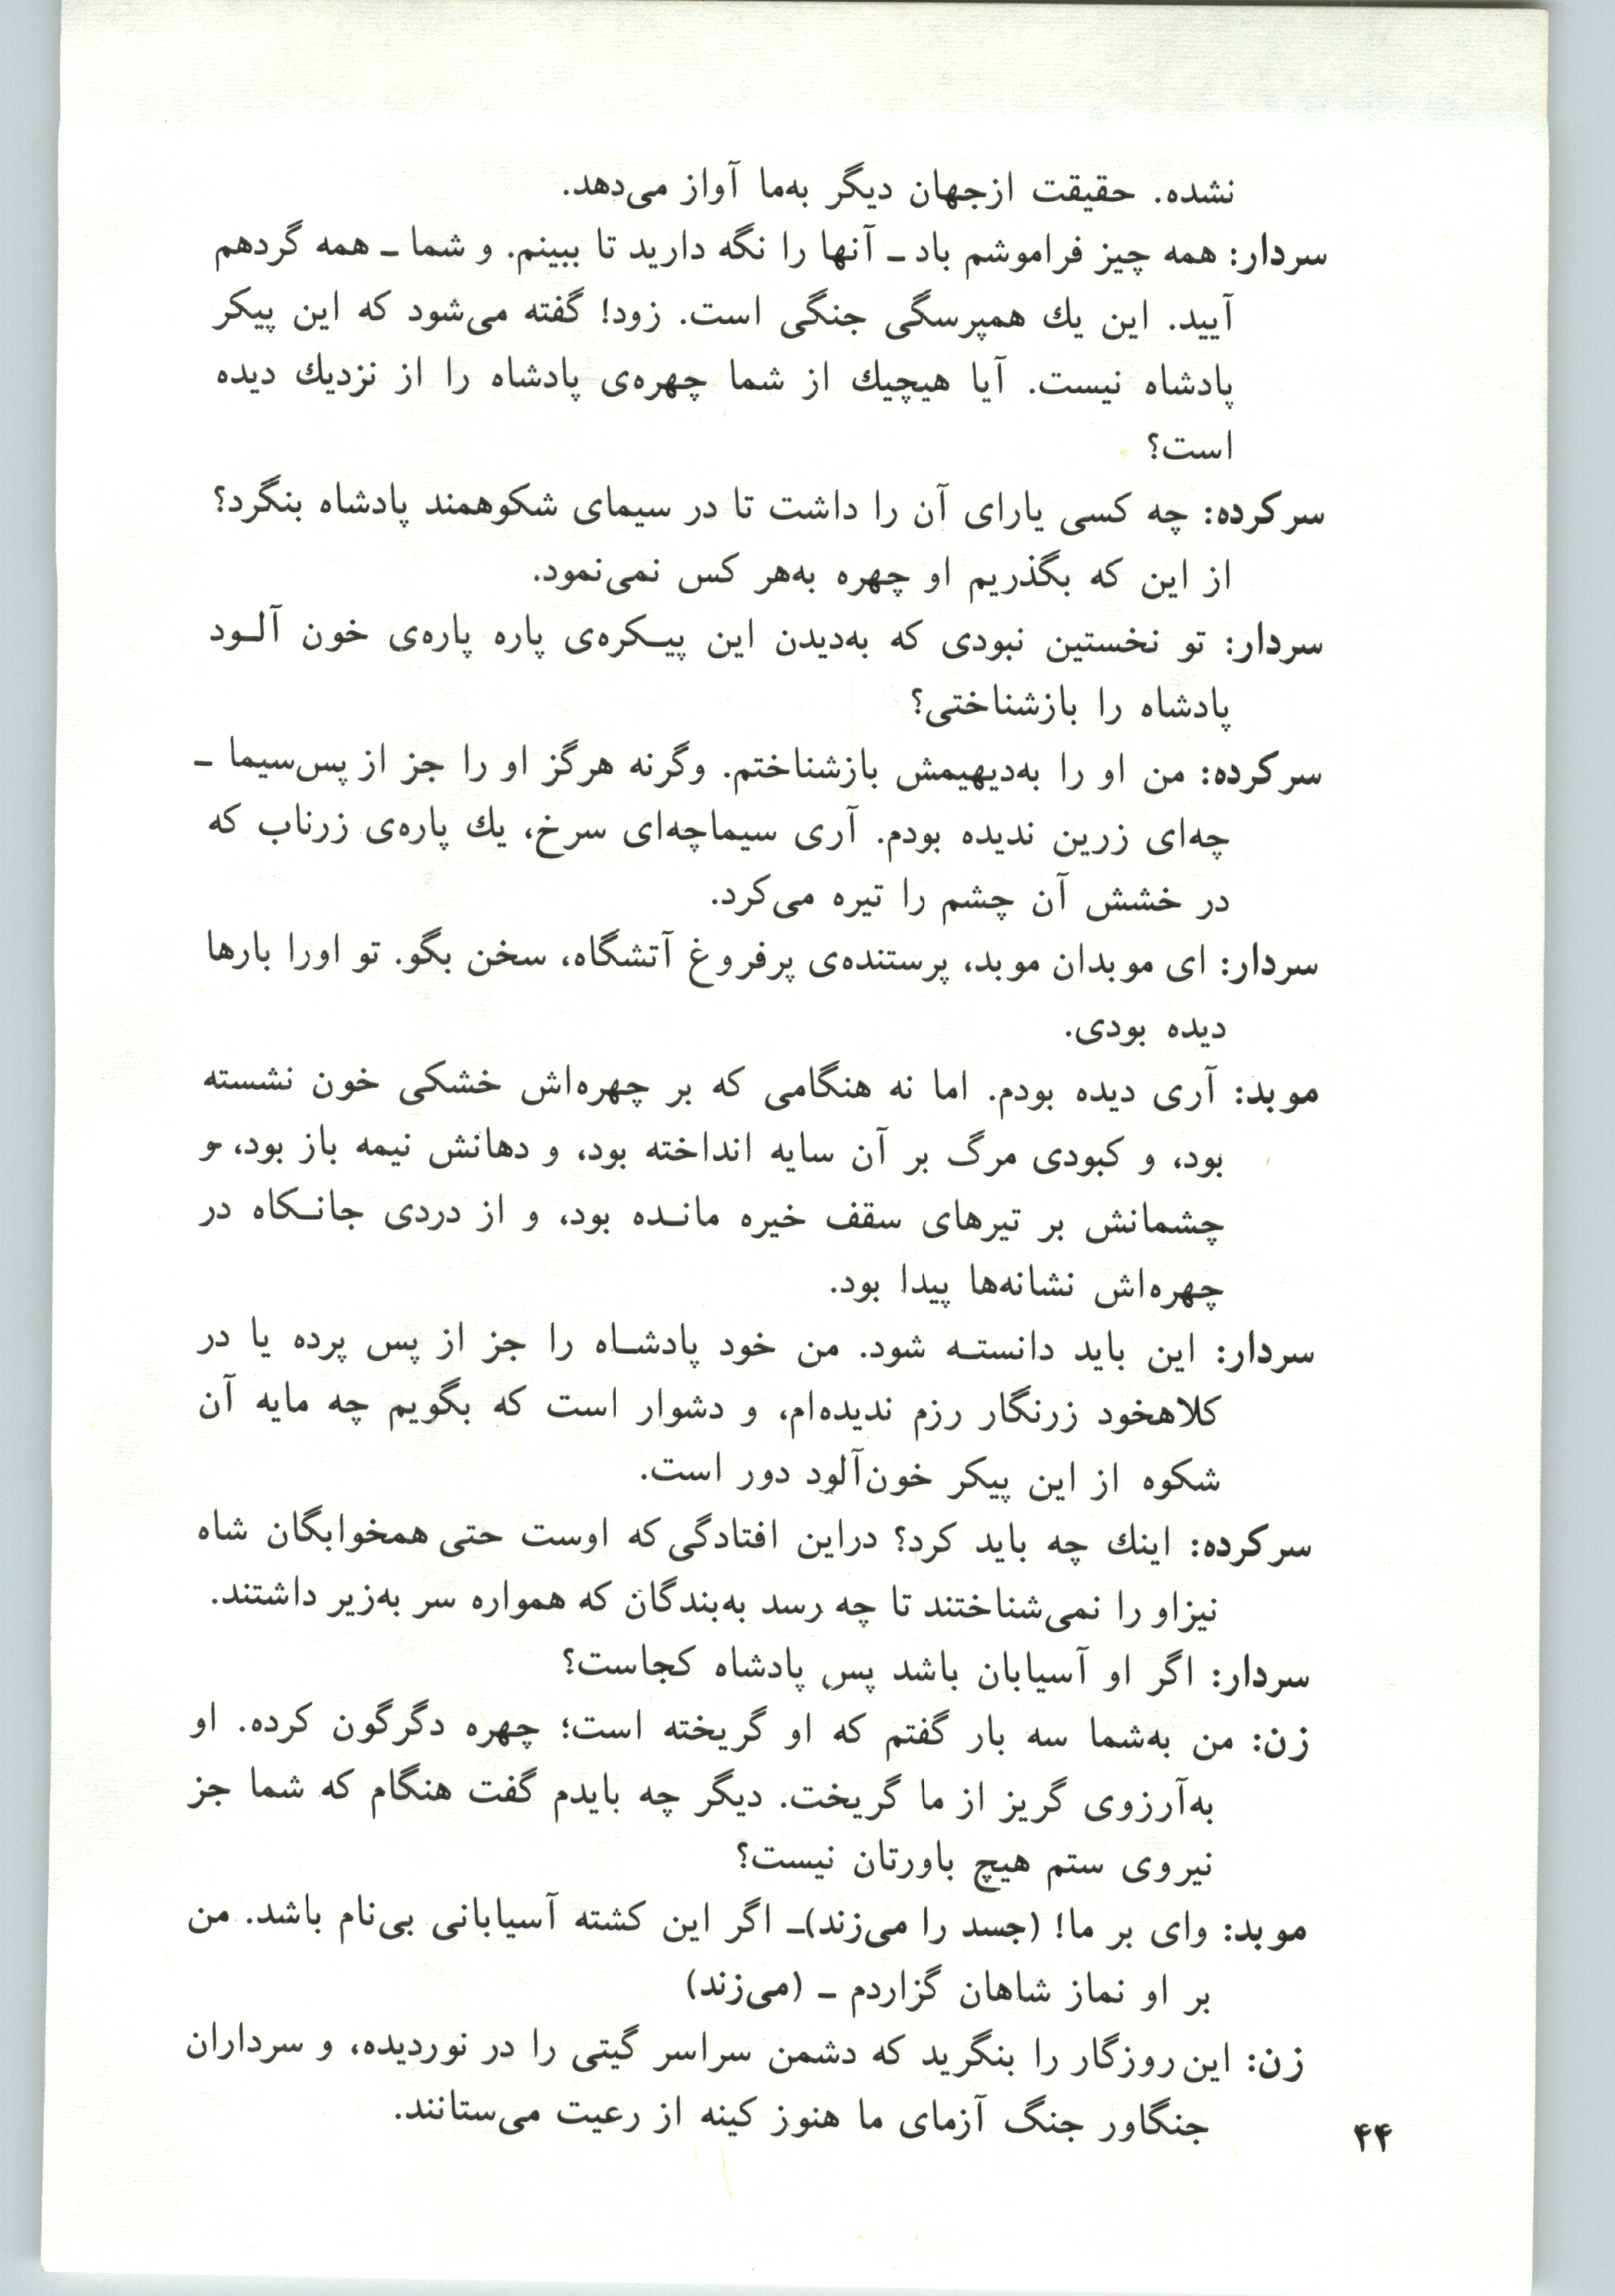 نشده. حقیقت ازجهان دیگر به‌ما آواز می‌دهد.
سردار: همه چیز فراموشم باد ـ آنها را نگه دارید تا ببینم. و شما ـ همه گردهم
آیید. این یك همپرسگی جنگی است. زود! گفته می‌شود که این پیکر
پادشاه نیست. آیا هیچیك از شما چهره‌ی پادشاه را از نزدیك دیده
است؟
سرکرده: چه کسی یارای آن را داشت تا در سیمای شکوهمند پادشاه بنگرد؟
از این که بگذریم او چهره به‌هر کس نمی‌نمود.
سردار: تو نخستین نبودی که به‌دیدن این پیـکره‌ی پاره پاره‌ی خون آلـود
پادشاه را بازشناختی؟
سرکرده: من او را به‌دیهیمش بازشناختم. وگرنه هرگز او را جز از پس‌سیما ـ
چه‌ای زرین ندیده بودم. آری سیماچه‌ای سرخ، یك پاره‌ی زرناب که
در خشش آن چشم را تیره می‌کرد.
سردار: ای موبدان موبد، پرستنده‌ی پرفروغ آتشگاه، سخن بگو. تو اورا بارها
دیده بودی.
موبد: آری دیده بودم. اما نه هنگامی که بر چهره‌اش خشکی خون نشسته
بود، و کبودی مرگ بر آن سایه انداخته بود، و دهانش نیمه باز بود، و
چشمانش بر تیرهای سقف خیره مانـده بود، و از دردی جانـکاه در
چهره‌اش نشانه‌ها پیدا بود.
سردار: این باید دانستـه شود. من خود پادشـاه را جز از پس پرده یا در
کلاهخود زرنگار رزم ندیده‌ام، و دشوار است که بگویم چه مایه آن
شکوه از این پیکر خون‌آلود دور است.
سرکرده: اینك چه باید کرد؟ دراین افتادگی‌که اوست حتی همخوابگان شاه
نیزاو را نمی‌شناختند تا چه رسد به‌بندگان که همواره سر به‌زیر داشتند.
سردار: اگر او آسیابان باشد پس پادشاه کجاست؟
زن: من به‌شما سه بار گفتم که او گریخته است؛ چهره دگرگون کرده. او
به‌آرزوی گریز از ما گریخت. دیگر چه بایدم گفت هنگام که شما جز
نیروی ستم هیچ باورتان نیست؟
موبد: وای بر ما! (جسد را می‌زند)ـ اگر این کشته آسیابانی بی‌نام باشد. من
بر او نماز شاهان گزاردم ـ (می‌زند)
زن: این‌روزگار را بنگرید که دشمن سراسر گیتی را در نوردیده، و سرداران
جنگاور جنگ آزمای ما هنوز کینه از رعیت می‌ستانند.
۴۴